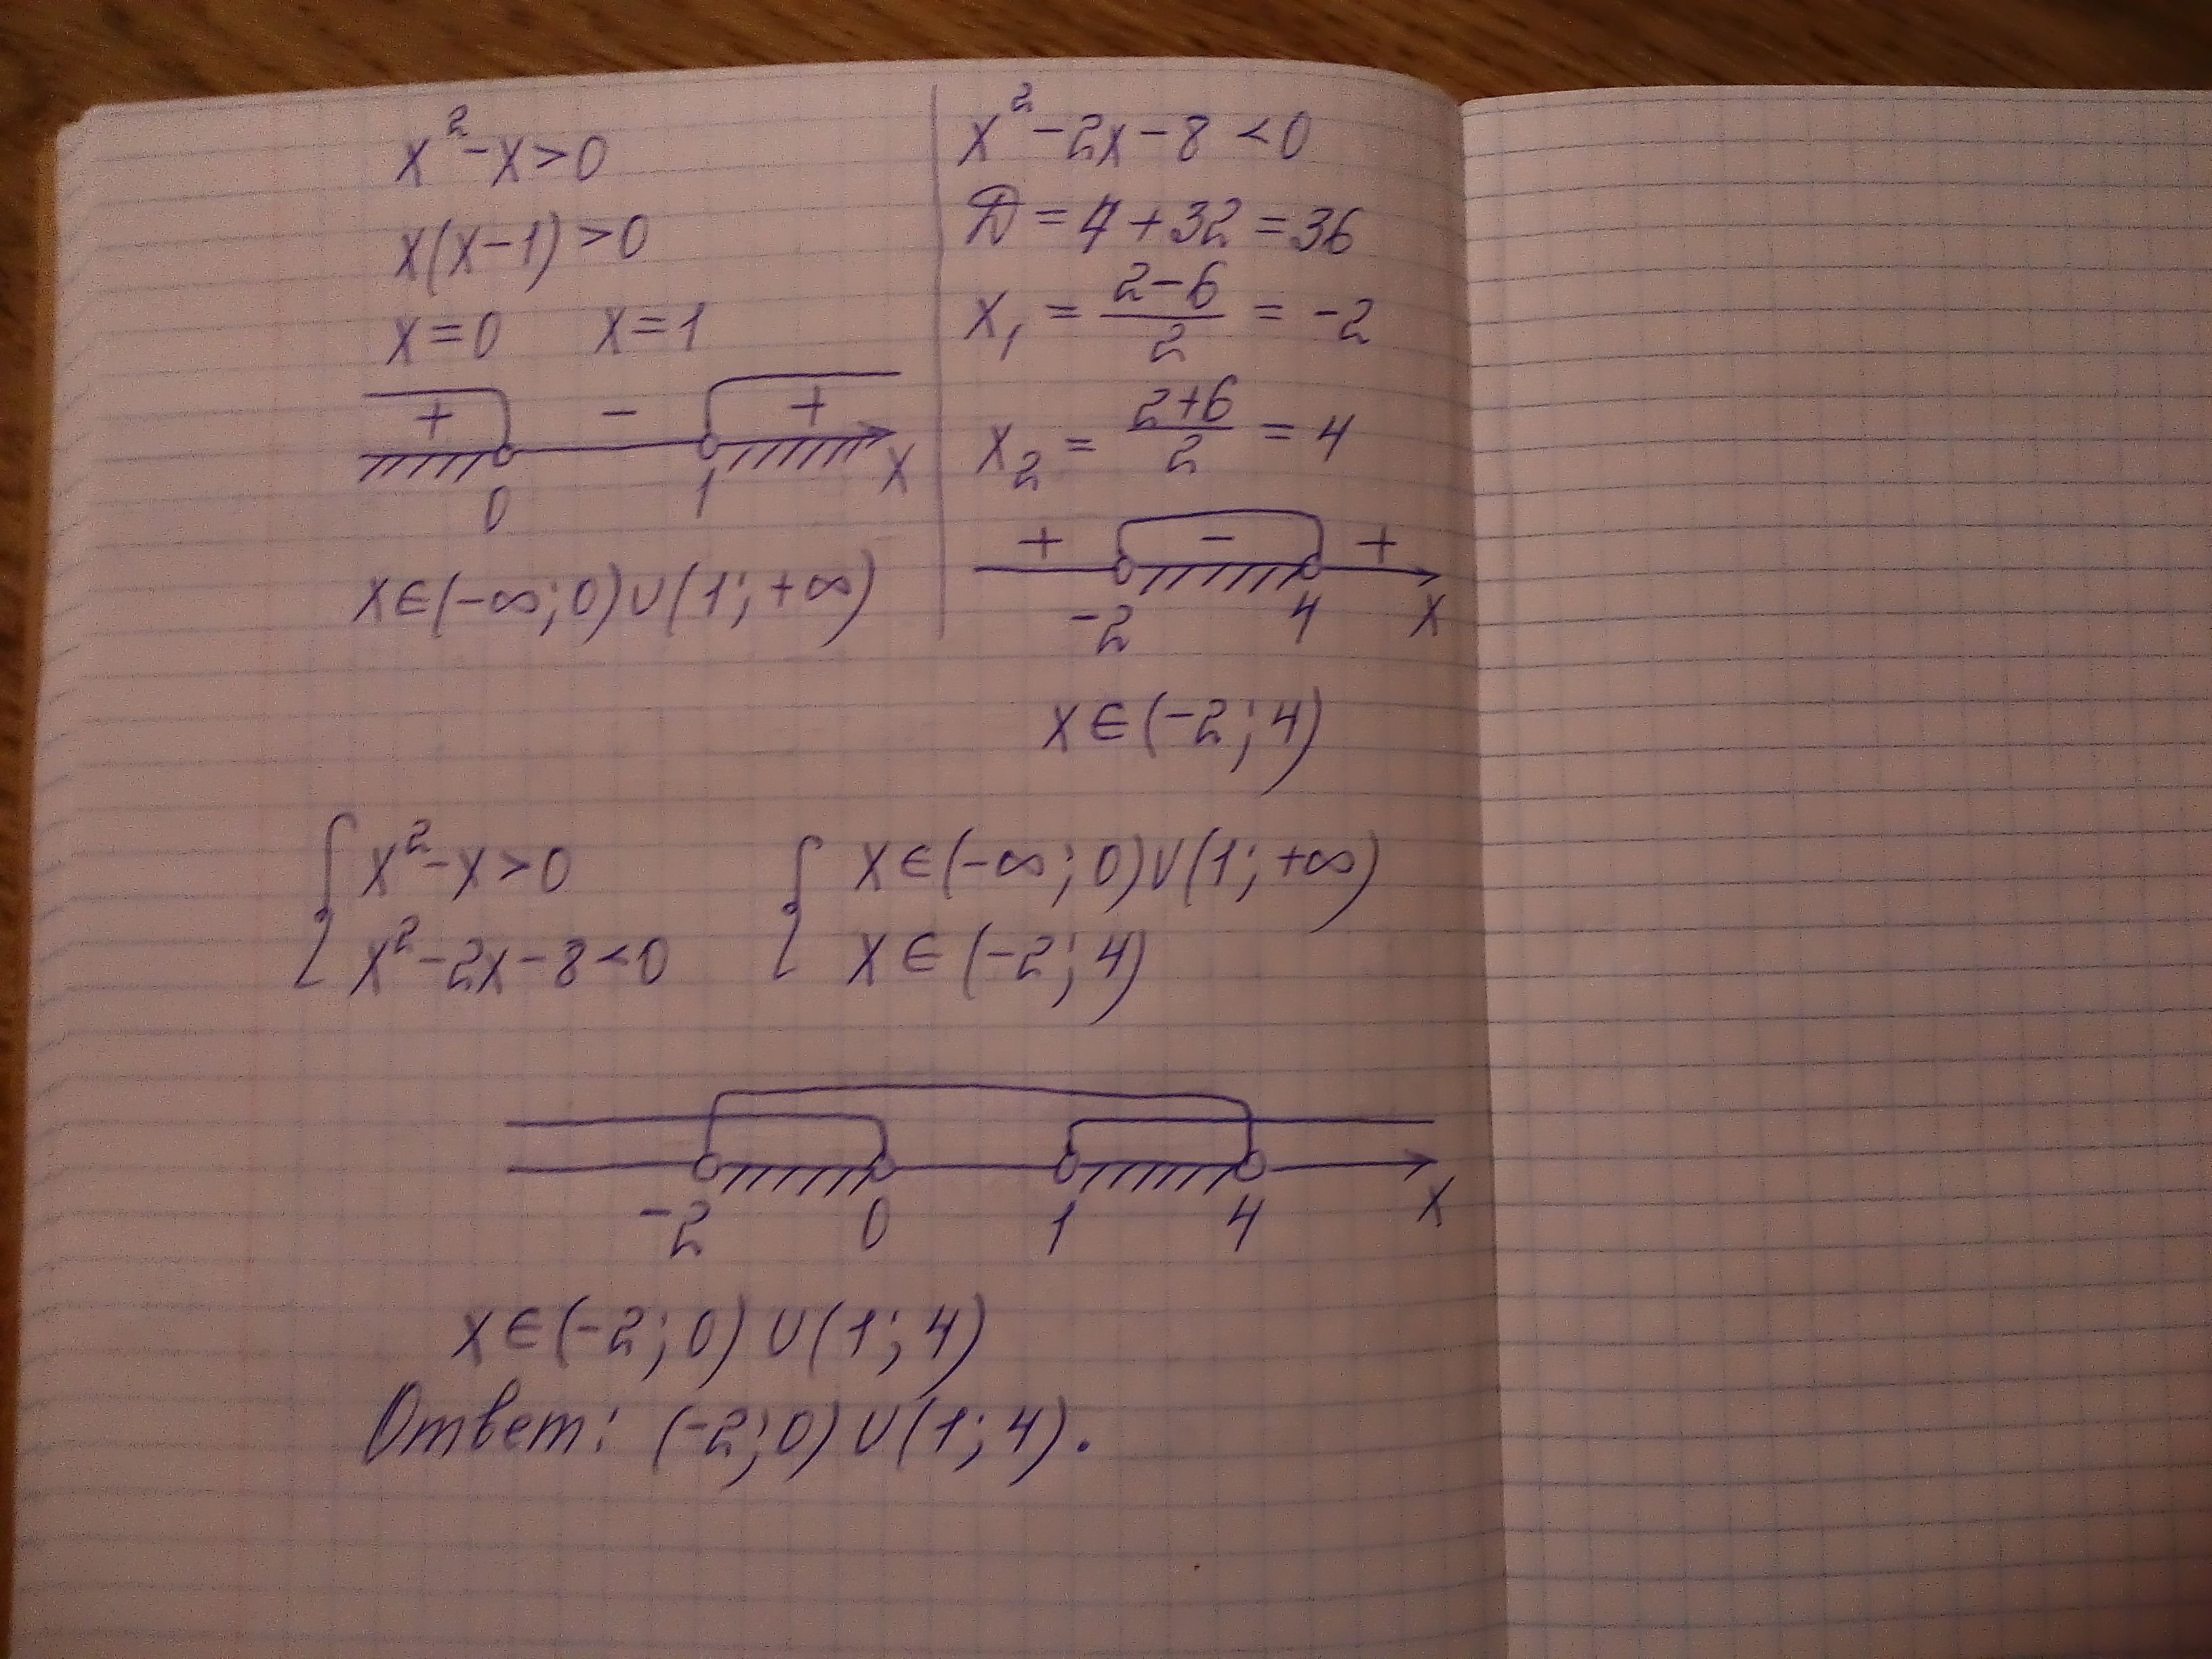 x² - x > 0
x(x-1) > 0
x = 0   x = 1
+ - +
0 1 x
x ∈ (-∞; 0) ∪ (1; +∞)
x² - 2x - 8 < 0
D = 4 + 32 = 36
x₁ = (2-6)/2 = -2
x₂ = (2+6)/2 = 4
+ - +
-2 4 x
x ∈ (-2; 4)
{ x² - x > 0   { x ∈ (-∞; 0) ∪ (1; +∞)
x² - 2x - 8 < 0   x ∈ (-2; 4)
-2 0 1 4 x
x ∈ (-2; 0) ∪ (1; 4)
Ответ: (-2; 0) ∪ (1; 4).